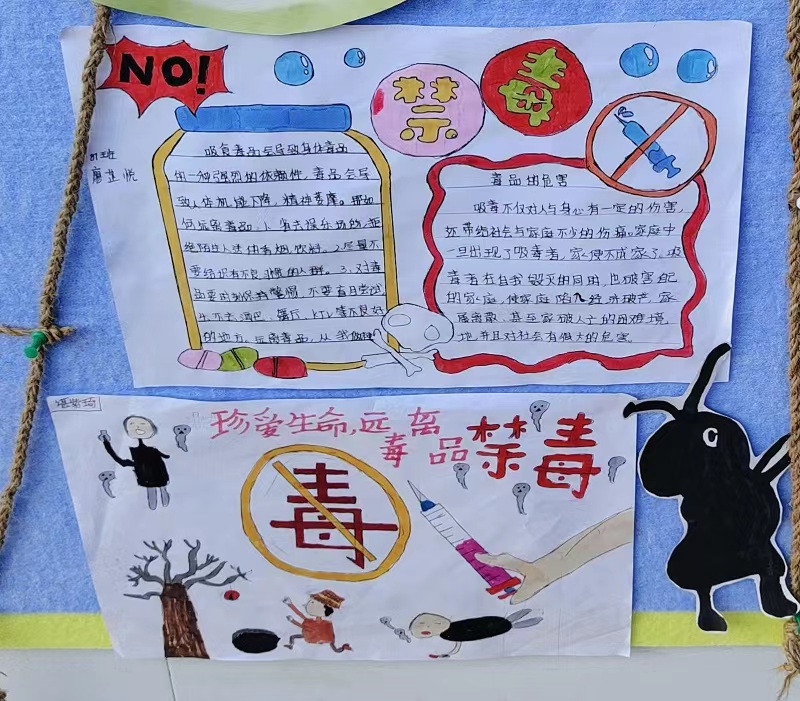 NO!
禁毒
吸食毒品会导致身体毒品
的一种强烈的依赖性，毒品会导
致人体机能下降，精神
何远离毒品，1.省去娱乐场所，拒
绝陌生人送的香烟，饮料。2.尽量不
要结识有不良习惯的人群。3.对毒
品要时刻保持警惕，不要盲目尝试
不去酒吧，KTV等不良好
的地方。远离毒品，从我做
毒品的危害
吸毒不仅对人与身心有一定的伤害，
还带给社会与家庭不少的伤痛。家庭中
一旦出现了吸毒者，家便不成家了。吸
毒者在自我毁灭的同时，也破害自己
的家庭，使家庭陷入经济破产，家
甚至家破人亡的困难境
地，并且对社会有很大的危害
珍爱生命，远离
毒品
禁毒
毒